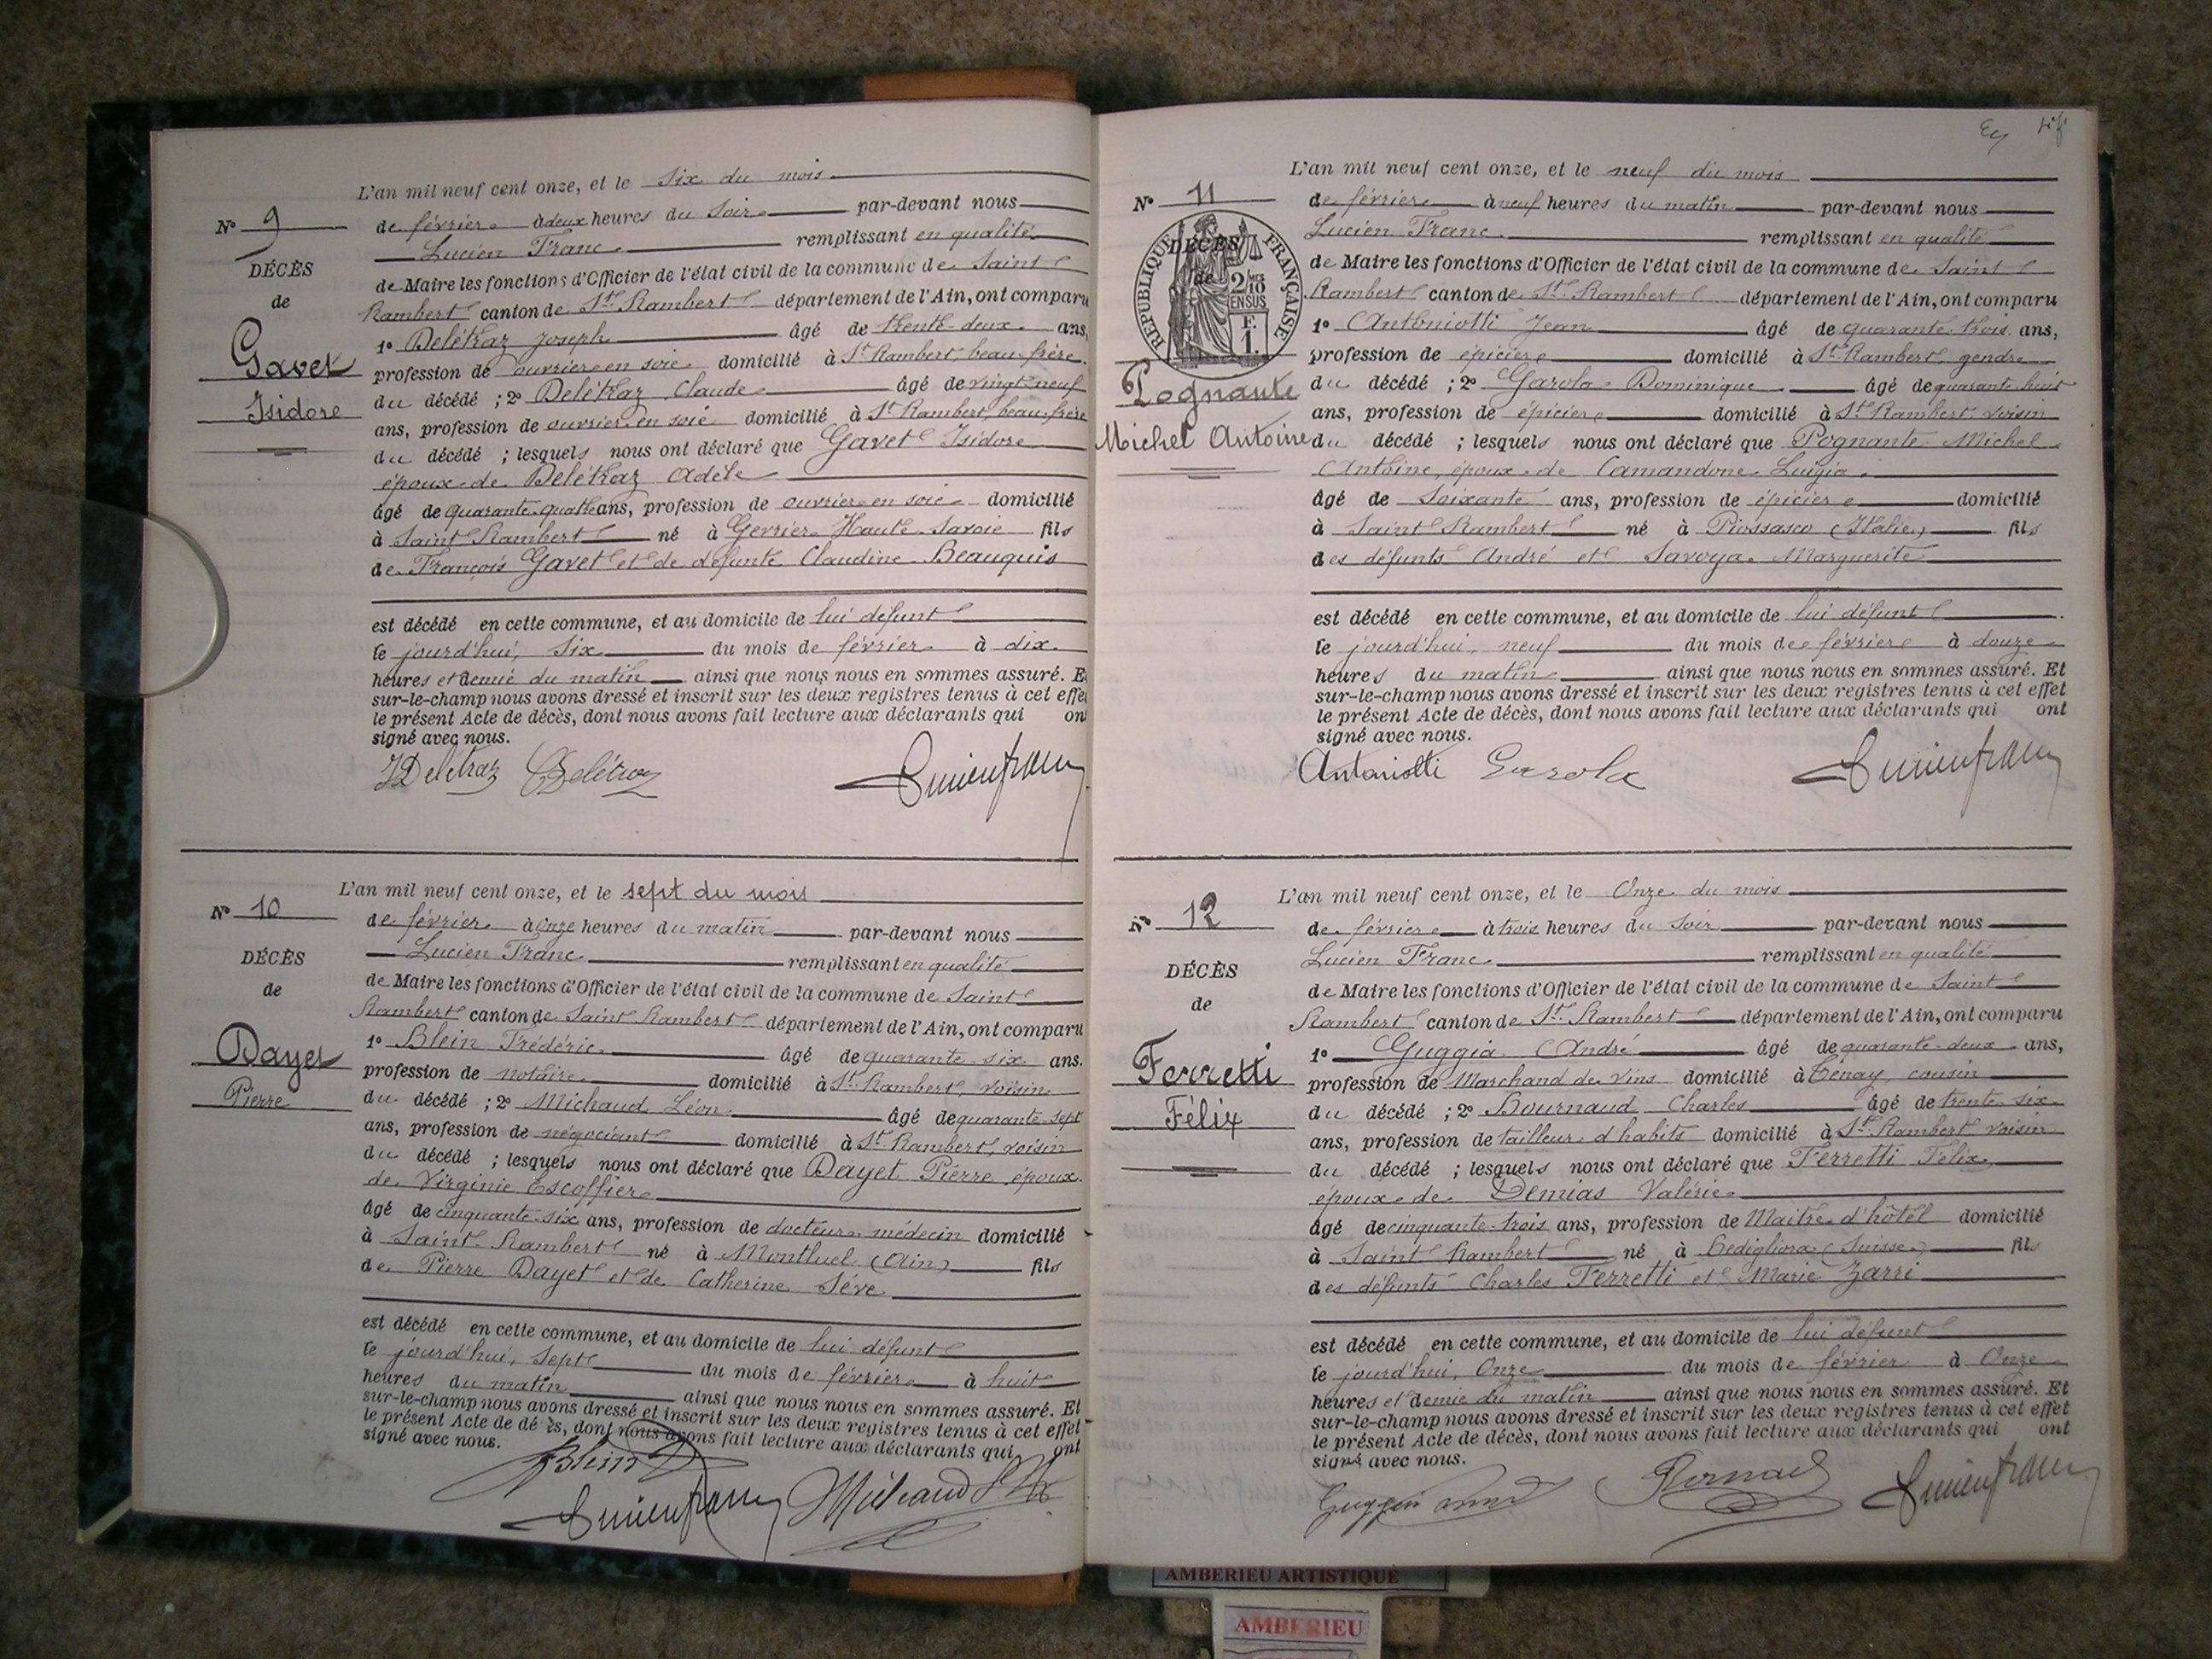 L'an mil neuf cent onze, et le six du mois
N° 9
de février à deux heures du soir par-devant nous
Lucien Franc remplissant en qualité
DÉCÈS
de Maire les fonctions d'Officier de l'état civil de la commune de Saint
de
Rambert canton de St Rambert département de l'Ain, ont comparu
1° Delétraz Joseph âgé de trente-deux ans,
Gavet
profession de ouvrier en soie domicilié à St Rambert, beau-frère
du décédé ; 2° Delétraz Claude âgé de vingt neuf
Isidore
ans, profession de ouvrier en soie domicilié à St Rambert, beau-frère
du décédé ; lesquels nous ont déclaré que Gavet Isidore
époux de Delétraz Adèle
âgé de quarante-quatre ans, profession de ouvrier en soie domicilié
à Saint Rambert né à Gevrier Haute-Savoie fils
de François Gavet et de défunte Claudine Beauquis
est décédé en cette commune, et au domicile de lui défunt
le jourd'hui, six du mois de février à dix
heures et demie du matin ainsi que nous nous en sommes assuré. E
sur-le-champ nous avons dressé et inscrit sur les deux registres tenus à cet effe
le présent Acte de décès, dont nous avons fait lecture aux déclarants qui on
signé avec nous.
JDeletraz CDelétraz Lucien franc
L'an mil neuf cent onze, et le sept du mois
N° 10
de février à onze heures du matin par-devant nous
Lucien Franc remplissant en qualité
DÉCÈS
de Maire les fonctions d'Officier de l'état civil de la commune de Saint
de
Rambert canton de Saint Rambert département de l'Ain, ont comparu
1° Blein Frédéric âgé de quarante-six ans.
Dayet
profession de notaire domicilié à St Rambert, voisin
Pierre
du décédé ; 2° Michaud Léon âgé de quarante-sept
ans, profession de négociant domicilié à St Rambert, voisin
du décédé ; lesquels nous ont déclaré que Dayet Pierre, époux
de Virginie Escoffier
âgé de cinquante-six ans, profession de docteur-médecin domicilié
à Saint-Rambert né à Montluel (Ain) fils
de Pierre Dayet et de Catherine Sève
est décédé en cette commune, et au domicile de lui défunt
le jourd'hui, sept du mois de février à huit
heures du matin ainsi que nous nous en sommes assuré. Et
sur-le-champ nous avons dressé et inscrit sur les deux registres tenus à cet effet
le présent Acte de dé ès, dont nous avons fait lecture aux déclarants qui ont
signé avec nous.
Blein
Lucien franc Michaud
L'an mil neuf cent onze, et le neuf du mois
N° 11
de février à neuf heures du matin par-devant nous
Lucien Franc remplissant en qualité
RÉPUBLIQUE FRANÇAISE
DÉCÈS
de
2/10 EN SUS
F. 1.
de Maire les fonctions d'Officier de l'état civil de la commune de Saint
Rambert canton de St Rambert département de l'Ain, ont comparu
1° Antoniotti Jean âgé de quarante-trois ans,
profession de épicier domicilié à St Rambert, gendre
Pognante
du décédé ; 2° Garola Dominique âgé de quarante-huit
ans, profession de épicier domicilié à St Rambert, voisin
Michel Antoine
du décédé ; lesquels nous ont déclaré que Pognante Michel
Antoine, époux de Camandone Luigia
âgé de soixante ans, profession de épicier domicilié
à Saint Rambert né à Piossasco (Italie) fils
des défunts André et Savoya Marguerite
est décédé en cette commune, et au domicile de lui défunt
le jourd'hui, neuf du mois de février à douze
heures du matin ainsi que nous nous en sommes assuré. Et
sur-le-champ nous avons dressé et inscrit sur les deux registres tenus à cet effet
le présent Acte de décès, dont nous avons fait lecture aux déclarants qui ont
signé avec nous.
Antoniotti Garola Lucien franc
L'an mil neuf cent onze, et le onze du mois
N° 12
de février à trois heures du soir par-devant nous
Lucien Franc remplissant en qualité
DÉCÈS
de Maire les fonctions d'Officier de l'état civil de la commune de Saint
de
Rambert canton de St Rambert département de l'Ain, ont comparu
1° Guggia André âgé de quarante-deux ans,
Ferretti
profession de Marchand de vins domicilié à Tenay, cousin
Félix
du décédé ; 2° Bournaud Charles âgé de trente-six
ans, profession de tailleur d'habits domicilié à St Rambert voisin
du décédé ; lesquels nous ont déclaré que Ferretti Félix,
époux de Demias Valérie
âgé de cinquante-trois ans, profession de Maître d'hôtel domicilié
à Saint Rambert né à Bedigliora (Suisse) fils
des défunts Charles Ferretti et Marie Zarri
est décédé en cette commune, et au domicile de lui défunt
le jourd'hui, onze du mois de février à onze
heures et demie du matin ainsi que nous nous en sommes assuré. Et
sur-le-champ nous avons dressé et inscrit sur les deux registres tenus à cet effet
le présent Acte de décès, dont nous avons fait lecture aux déclarants qui ont
signé avec nous.
Guggia Lucien franc
AMBERIEU ARTISTIQUE
AMBERIEU